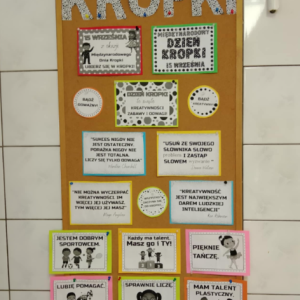 KROPKI
15 WRZEŚNIA
z okazji
Międzynarodowego
Dnia Kropki
UBIERZ SIĘ W KROPKI
MIĘDZYNARODOWY
DZIEŃ
KROPKI
15 WRZEŚNIA
BĄDŹ
ODWAŻNY
DZIEŃ KROPKI
to święto
KREATYWNOŚCI
ZABAWY I ODWAGI
BĄDŹ
KREATYWNY
"SUKCES NIGDY NIE
JEST OSTATECZNY.
PORAŻKA NIGDY NIE
JEST TOTALNA.
LICZY SIĘ TYLKO ODWAGA"
"USUŃ ZE SWOJEGO
SŁOWNIKA SŁOWO
problem I ZASTĄP
SŁOWEM wyzwanie"
"NIE MOŻNA WYCZERPAĆ
KREATYWNOŚCI. IM
WIĘCEJ JEJ UŻYWASZ,
TYM WIĘCEJ JEJ MASZ"
"KREATYWNOŚĆ
JEST NAJWIĘKSZYM
DAREM LUDZKIEJ
INTELIGENCJI"
JESTEM DOBRYM
SPORTOWCEM.
Każdy ma talent.
Masz go i TY!
PIĘKNIE
TAŃCZĘ.
LUBIĘ POMAGAĆ.
SPRAWNIE LICZĘ.
MAM TALENT
PLASTYCZNY